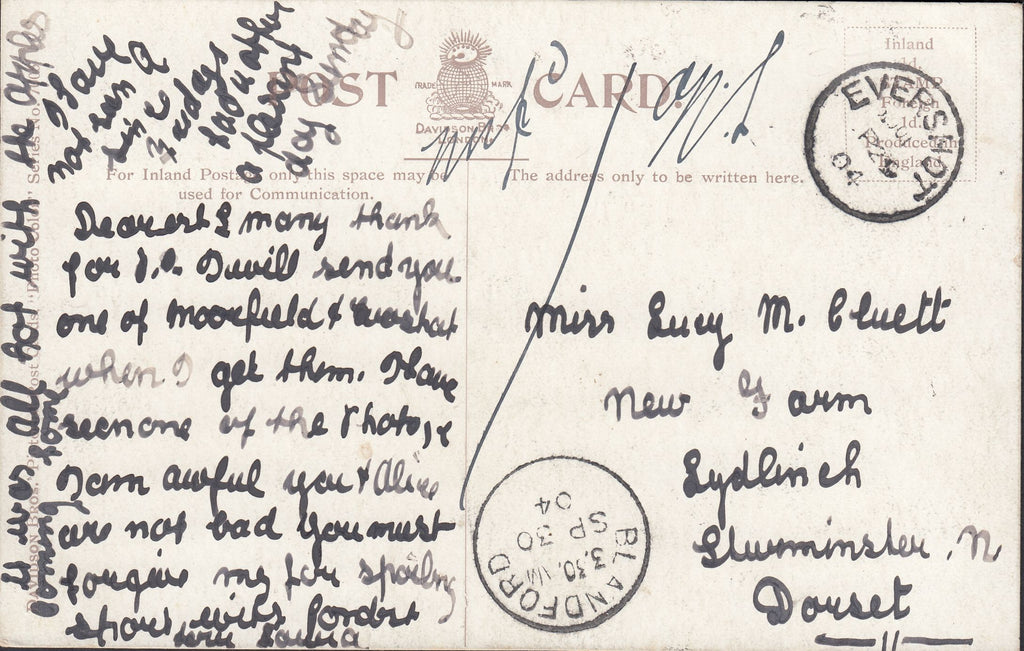 POST CARD.
TRADE MARK
DAVIDSON BROS
LONDON
For Inland Postage only this space may be
used for Communication.
The address only to be written here.
Inland
Produced in
England
EVERSHOT
04
BLANDFORD
3.30.PM
SP 30
04
Dearest L many thank
for P.C. I will send you
one of Moorfield &
when I get them. I have
seen one of the Photo,s
I am awful you & Alice
are not bad you must
forgive me for spoiling
sport with fondest
love Louisa
Miss Lucy M. Cluett
New Farm
Lydlinch
Sturminster. N.
Dorset
It was all hot with the apples
coming home
I have
not seen A
since
Tuesdays
had rather
a pleasant
day Sunday